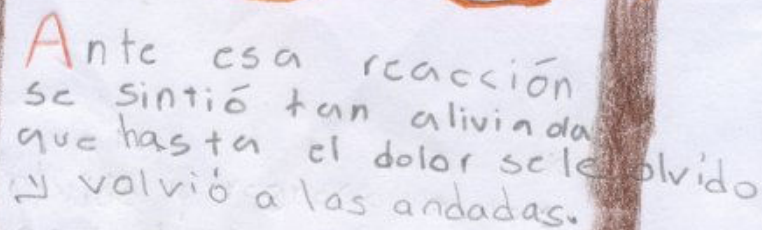 Ante esa reacción
se sintió tan aliviada
que hasta el dolor se le olvido
y volvió a las andadas.